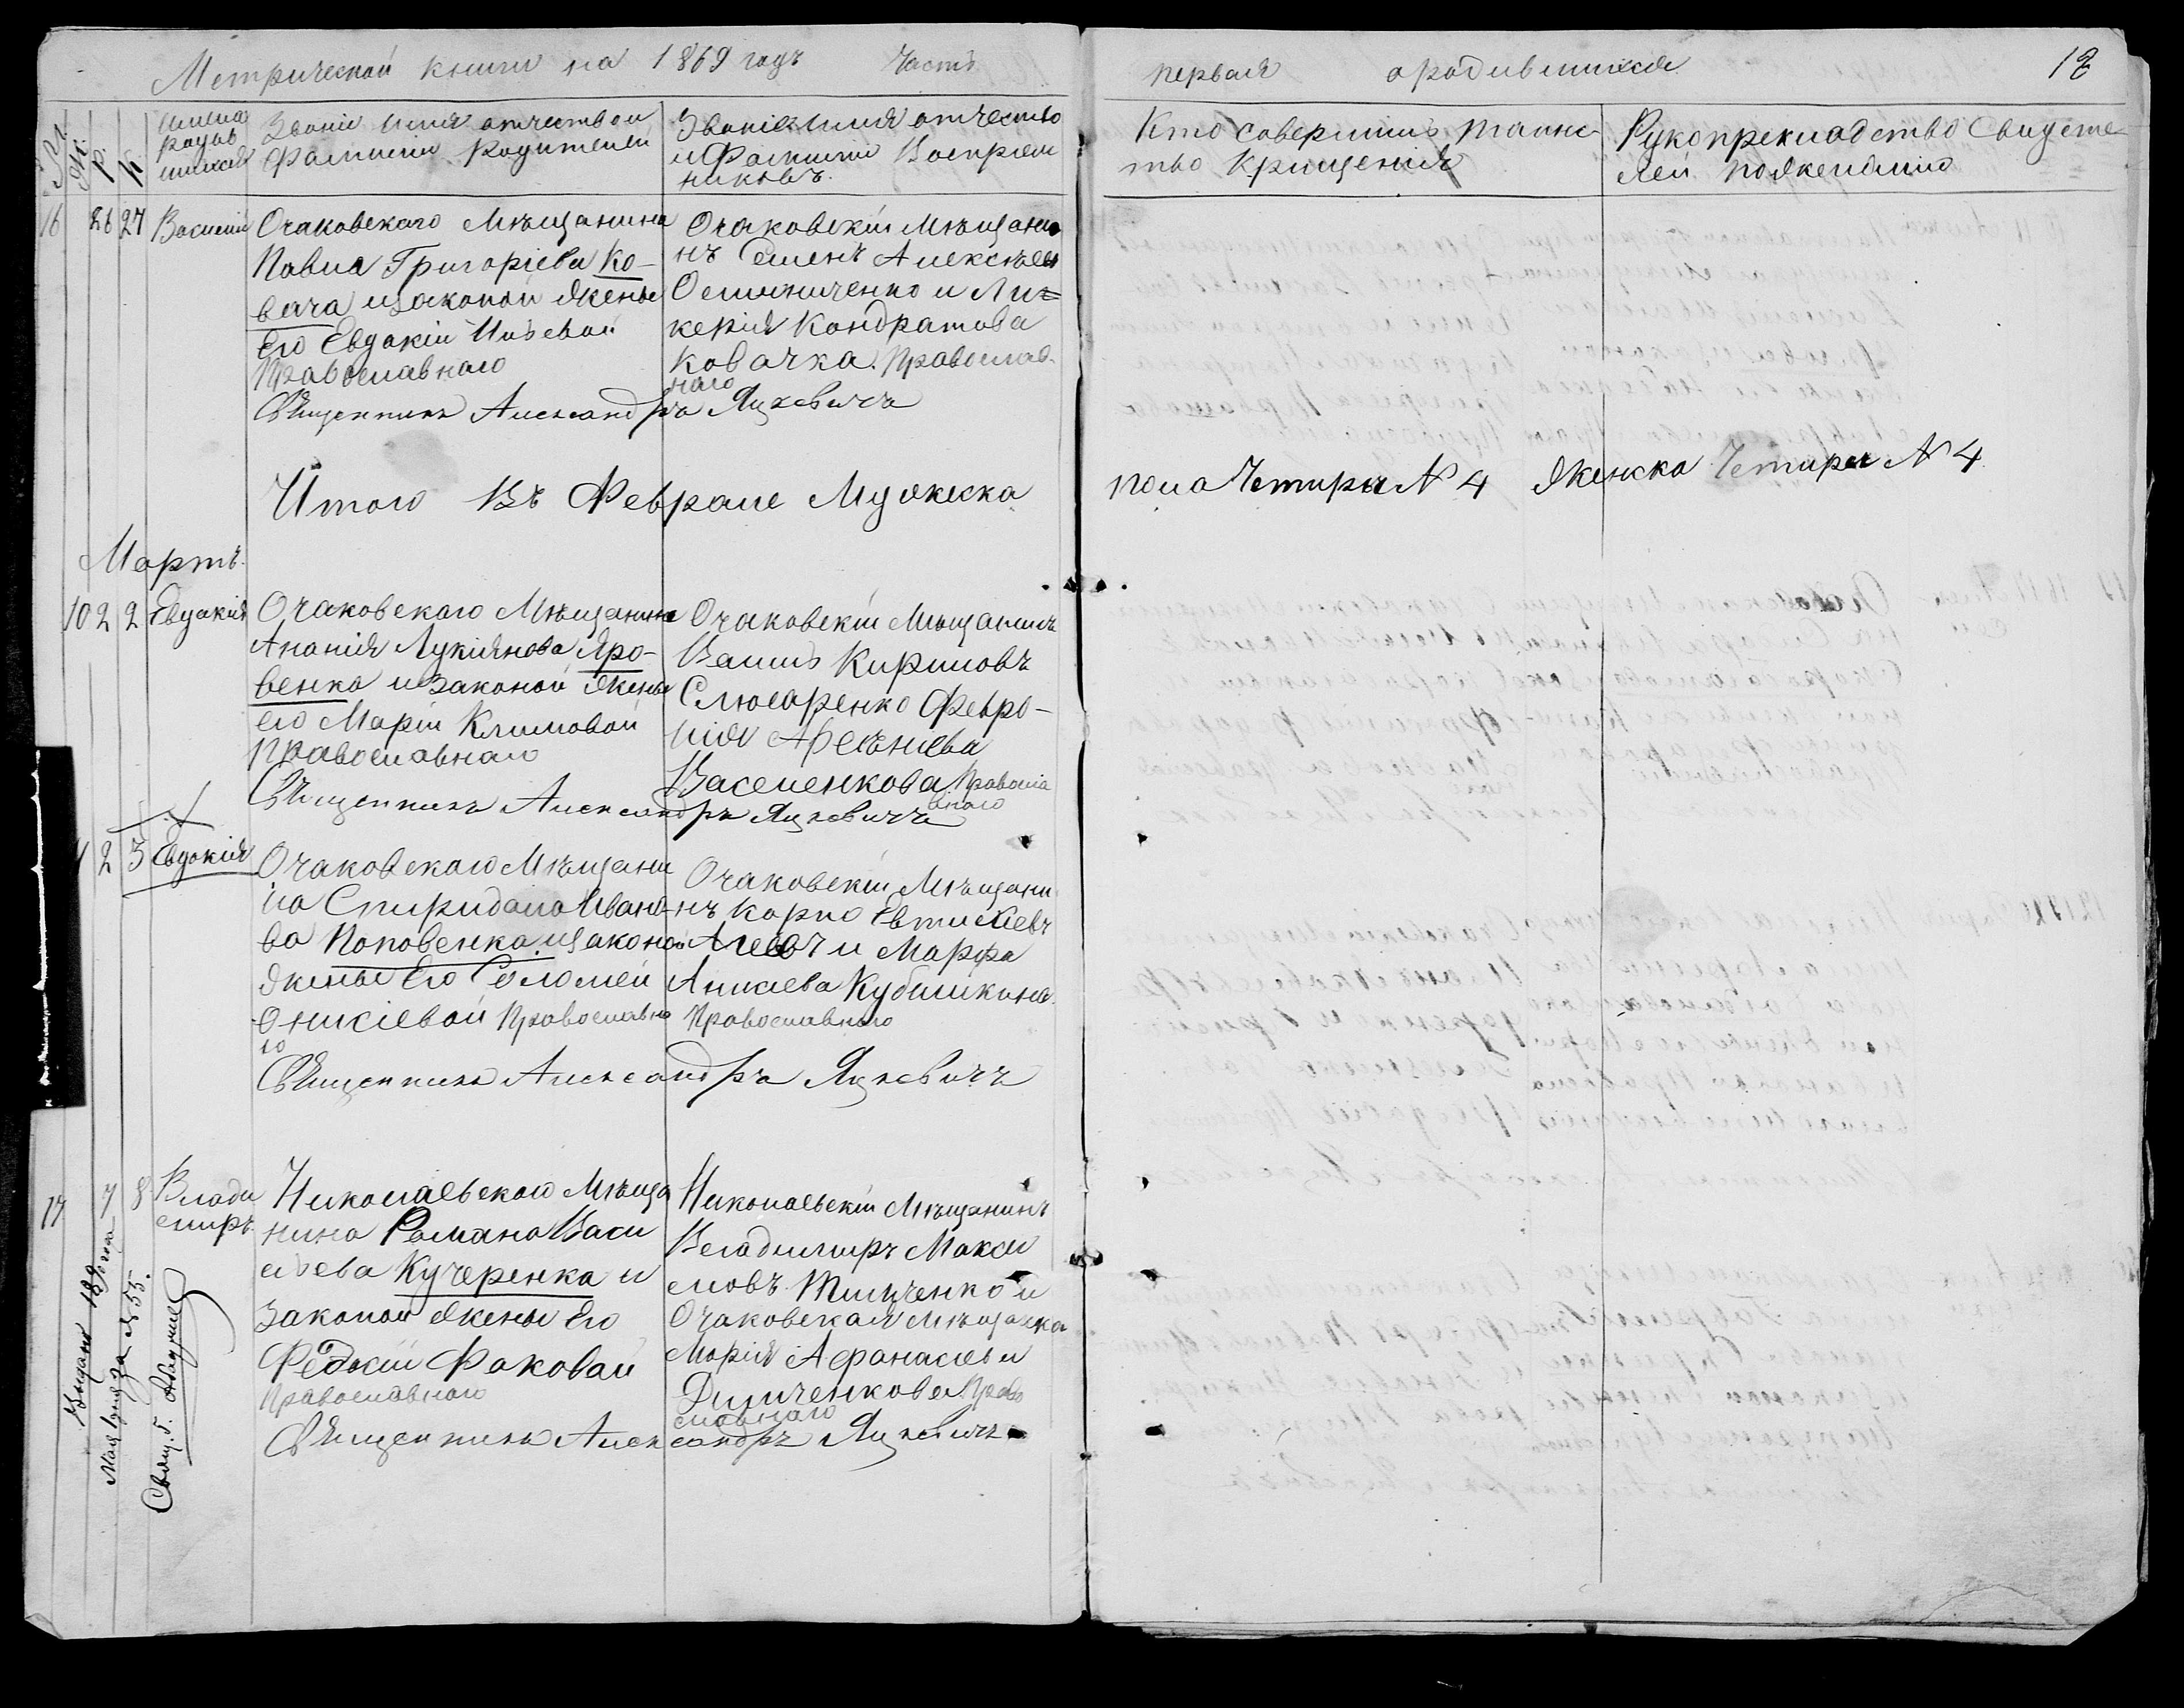 Метрической книги на 1869 годъ Часть
первая ородившихся 18
М. Ж. р. к.
имена родившихся
Званіе имя отчество и
Фамилія Родителей
Званіе имя отчество
и Фамилія Воспріем
никовъ.
Кто совершилъ таинс-
тво Крищенія
Рукоприкладство Свидете
лей пожеланию
16 26 27 Василій
Очаковскаго Мѣщанина
Павла Григоріева Ко-
вача и законой жены
Его Евдокіи
Православнаго
Очаковскій Мѣщани
нъ Семенъ Алексѣевъ
и Ли=
керія Кондратова
Ковачка. Православ-
наго
Священникъ Александръ Яцкевичъ
Итого Въ Феврале Мужеска
пола Четыри № 4 Женска Четыри № 4
Мартъ.
10 2 2 Евдокія
Очаковскаго Мѣщанина
Ананія Лукіянова Яро-
венка и законой жены
его Маріи Климовой
Православнаго
Очаковскій Мѣщанинъ
Кириловъ
Слюсаренко Февро-
нія
Васеленкова Правосла
внаго
Священникъ Александръ Яцкевичъ
2 3 Евдокія
Очаковскаго Мѣщани
на Спиридона Ивано-
ва Поповенка и законой
жены Его Соломеи
Онисіевой Православна
го
Очаковскій Мѣщани
нъ Карпо Евтихіевъ
и Марфа
Аникіева
Православнаго
Священникъ Александръ Яцкевичъ
17 7 8 Влади
миръ
Николаевскаго Мѣща
нина Романа Васи
льева Кучеренка и
законой жены Его
Федосіи Фоковой
Православнаго
Николаевскій Мѣщанинъ
Владимиръ Макси
мовъ и
Очаковская мѣщанка
Марія Афанасіева
Димченкова Право
славнаго
Священникъ Александръ Яцкевичъ
Выдан
Мая за № 55.
Свящ. Г.